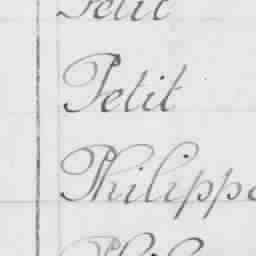 Petit
Petit
Philippe